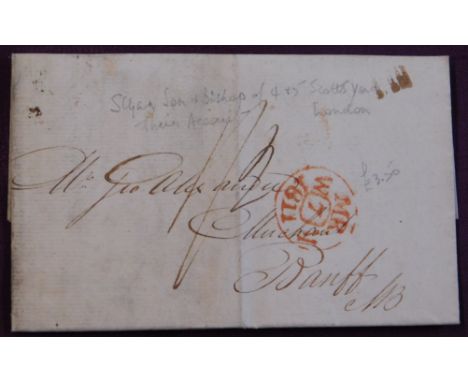 Son + Bishop of 4 + 5 Scotts Yard
London
Their Account
£3.50
Mr Geo Alexander
Merchant
Banff
NB